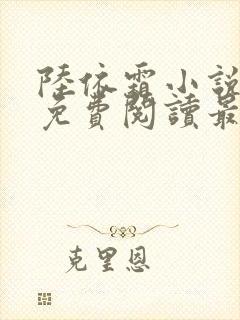 陸依霜小說
免費閱讀最
克里恩